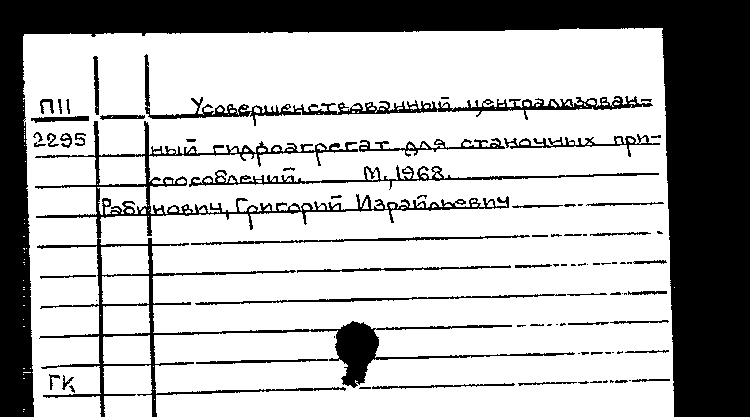 П11 Усовершенствованный централизован-
2295 ный гидроагрегат для станочных при-
способлений. М., 1968.
Рабинович, Григорий Израильевич
ГК